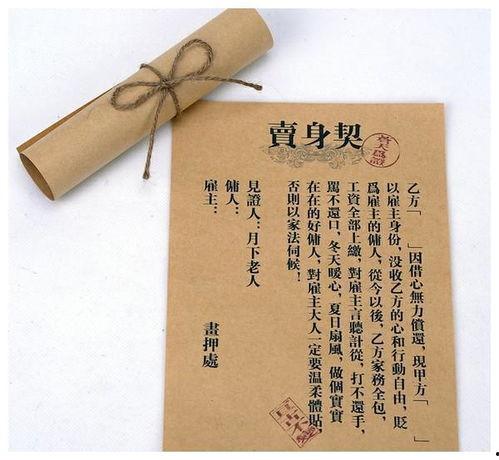 賣身契
蒼天爲證
乙方「　　」因借心無力償還，現甲方「　　」
以雇主身份，没收乙方的心和行動自由，貶
爲雇主的傭人，從今以後，乙方家務全包，
工資全部上繳，對雇主言聽計從，打不還手，
罵不還口，冬天暖心，夏日扇風，做個實實
在在的好傭人，對雇主大人一定要温柔體貼，
否則以家法伺候！
見證人：月下老人
傭人：
雇主：
畫押處